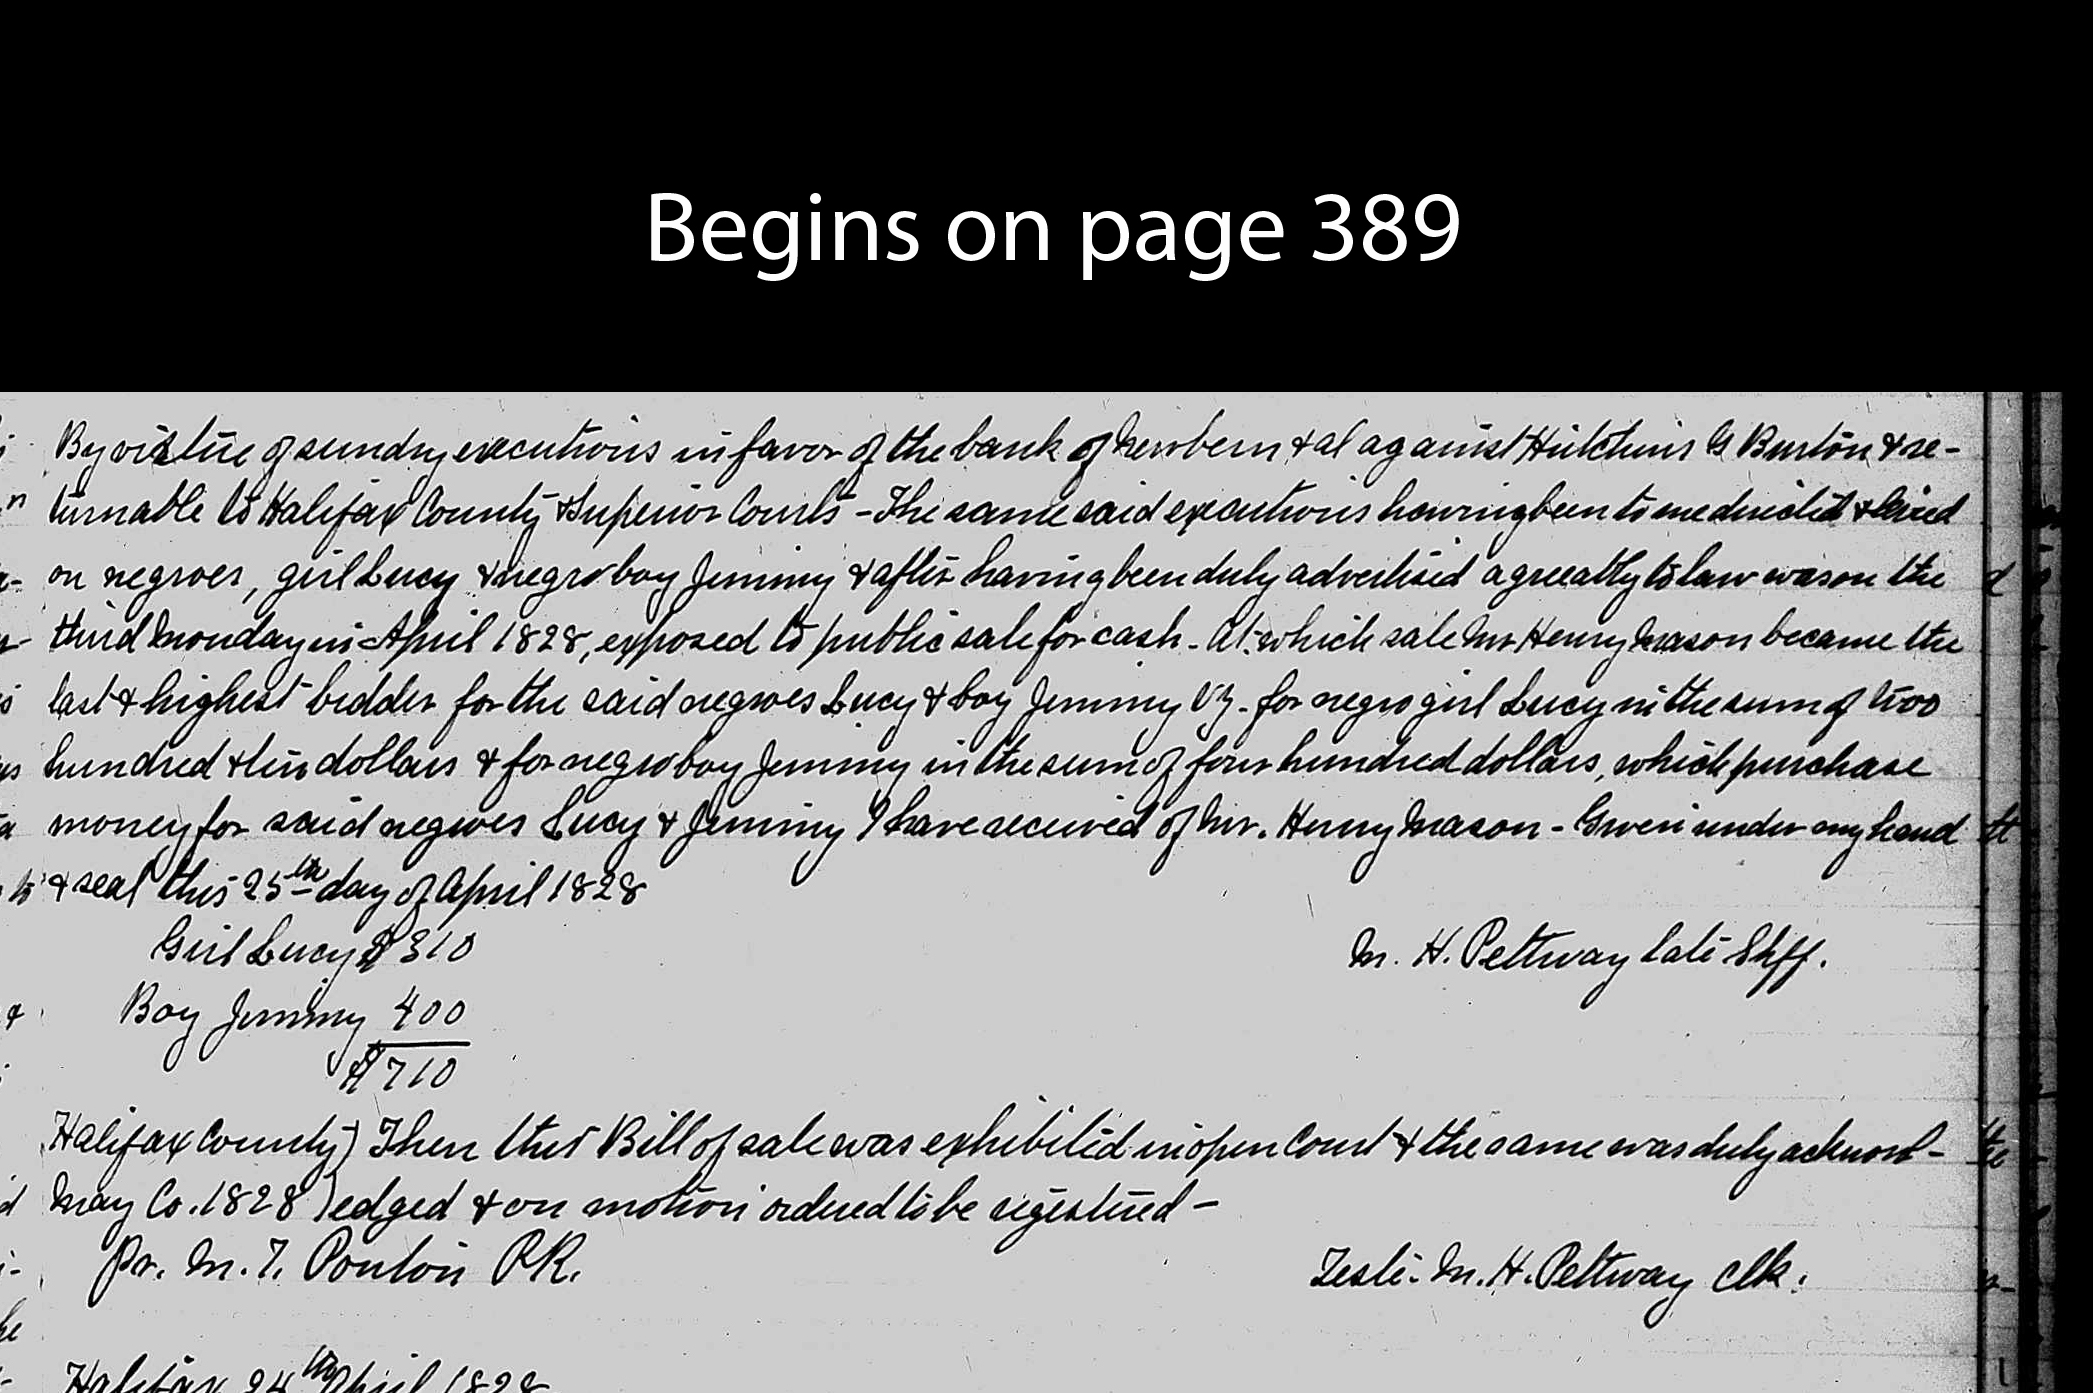 Begins on page 389
By virtue of sundry executions in favor of the bank of Newbern & al against Hutchins G Burton & re-
turnable to Halifax County & Superior Courts - The same said executions having been to me directed & levied
on negroes, girl Lucy & negro boy Jimmy & after having been duly advertised agreeably to law was on the
third Monday in April 1828, exposed to public sale for cash - At which sale Mr Henry Mason became the
last & highest bidder for the said negroes Lucy & boy Jimmy Vz. for negro girl Lucy in the sum of two
hundred & ten dollars & for negro boy Jimmy in the sum of four hundred dollars, which purchase
money for said negroes Lucy & Jimmy I have received of Mr. Henry Mason - Given under my hand
& seal this 25th day of April 1828
Girl Lucy $310
M. H. Pettway late Shff.
Boy Jimmy 400
$710
Halifax County) Then this Bill of sale was exhibited in open Court & the same was duly acknowl-
May Co. 1828 )edged & on motion ordered to be registered -
Pr. M. T. Ponton P.R.
Teste. M. H. Pettway Clk.
Halifax 24th April 1828